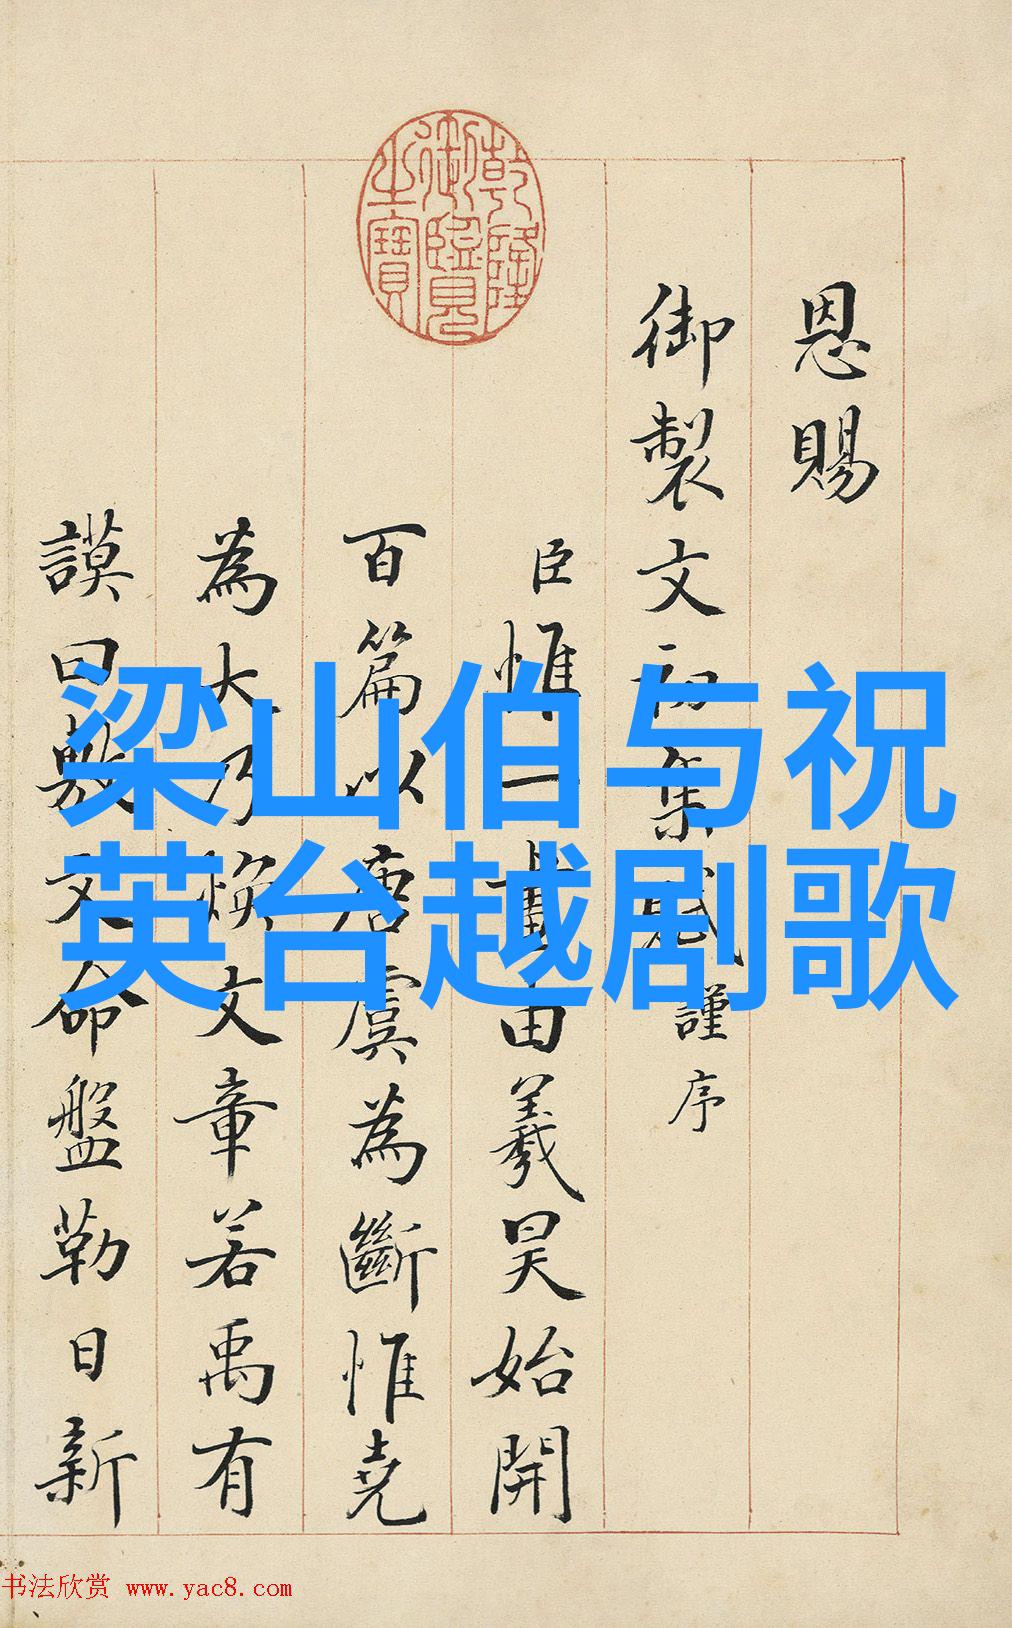 乾隆御覽之寶
恩賜
御製文初集謹序
臣惟一畫由羲昊始開
百篇以唐虞為斷惟堯
為大乃煥文章若禹有
謨曰敷文命盤勒日新
梁山伯与祝
英台越剧歌
书法欣赏 www.yac8.com